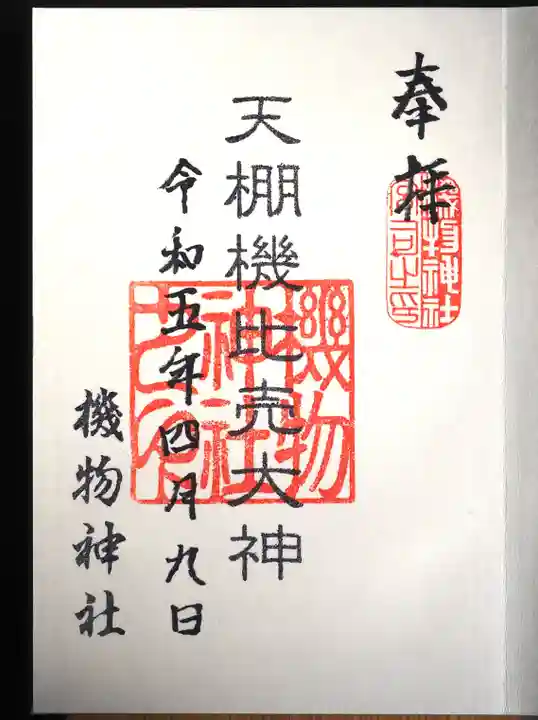 奉拝
天棚機比売大神
令和五年四月九日
機物神社
機物神社